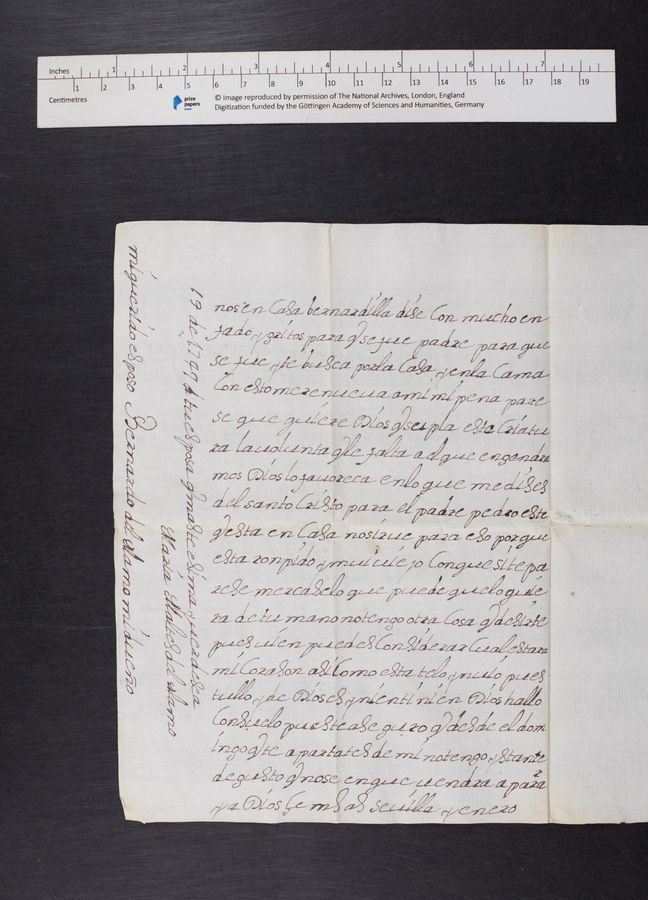 Inches 1 2 3 4 5 6 7
1 2 3 4 5 6 7 8 9 10 11 12 13 14 15 16 17 18 19
Centimetres
prize papers
© Image reproduced by permission of The National Archives, London, England
Digitization funded by the Göttingen Academy of Sciences and Humanities, Germany
nos en Casa bernardilla dise Con mucho en
fado y gritos para q̃ se fue padre para que
se fue y te busca por la Casa y en la Cama
Con esto me renueua a mi mi pena pare
se que quiere Dios q̃ supla esta Criatu
ra la uolunta q̃ le falta a el que engendra
mos Dios lo fauoresca en lo que me dises
del santo Cristo para el padre pedro este
q̃ esta en Casa no sirue para eso porque
esta ronpido y mui uiejo Conque si te pa
rese mercaselo que puede que lo quie
ra de tu mano no tengo otra Cosa q̃ desirte
pues uien puedes Considerar Cual estara
mi Corason asi Como esta telo y muio pues
tullo y de Dios es y ni en ti ni en Dios hallo
Consuelo pueste aseguro q̃ desde el dom
ingo q̃ te apartates de mi no tengo ystante
de gusto q̃ no se en que uendra a parar
y a Dios seuilla y enero
19 de 1747 tu esposa q̃ mas te estima y uer desea
Maria del Alamo
mi querido esposo Bernardo del Alamo mi dueño